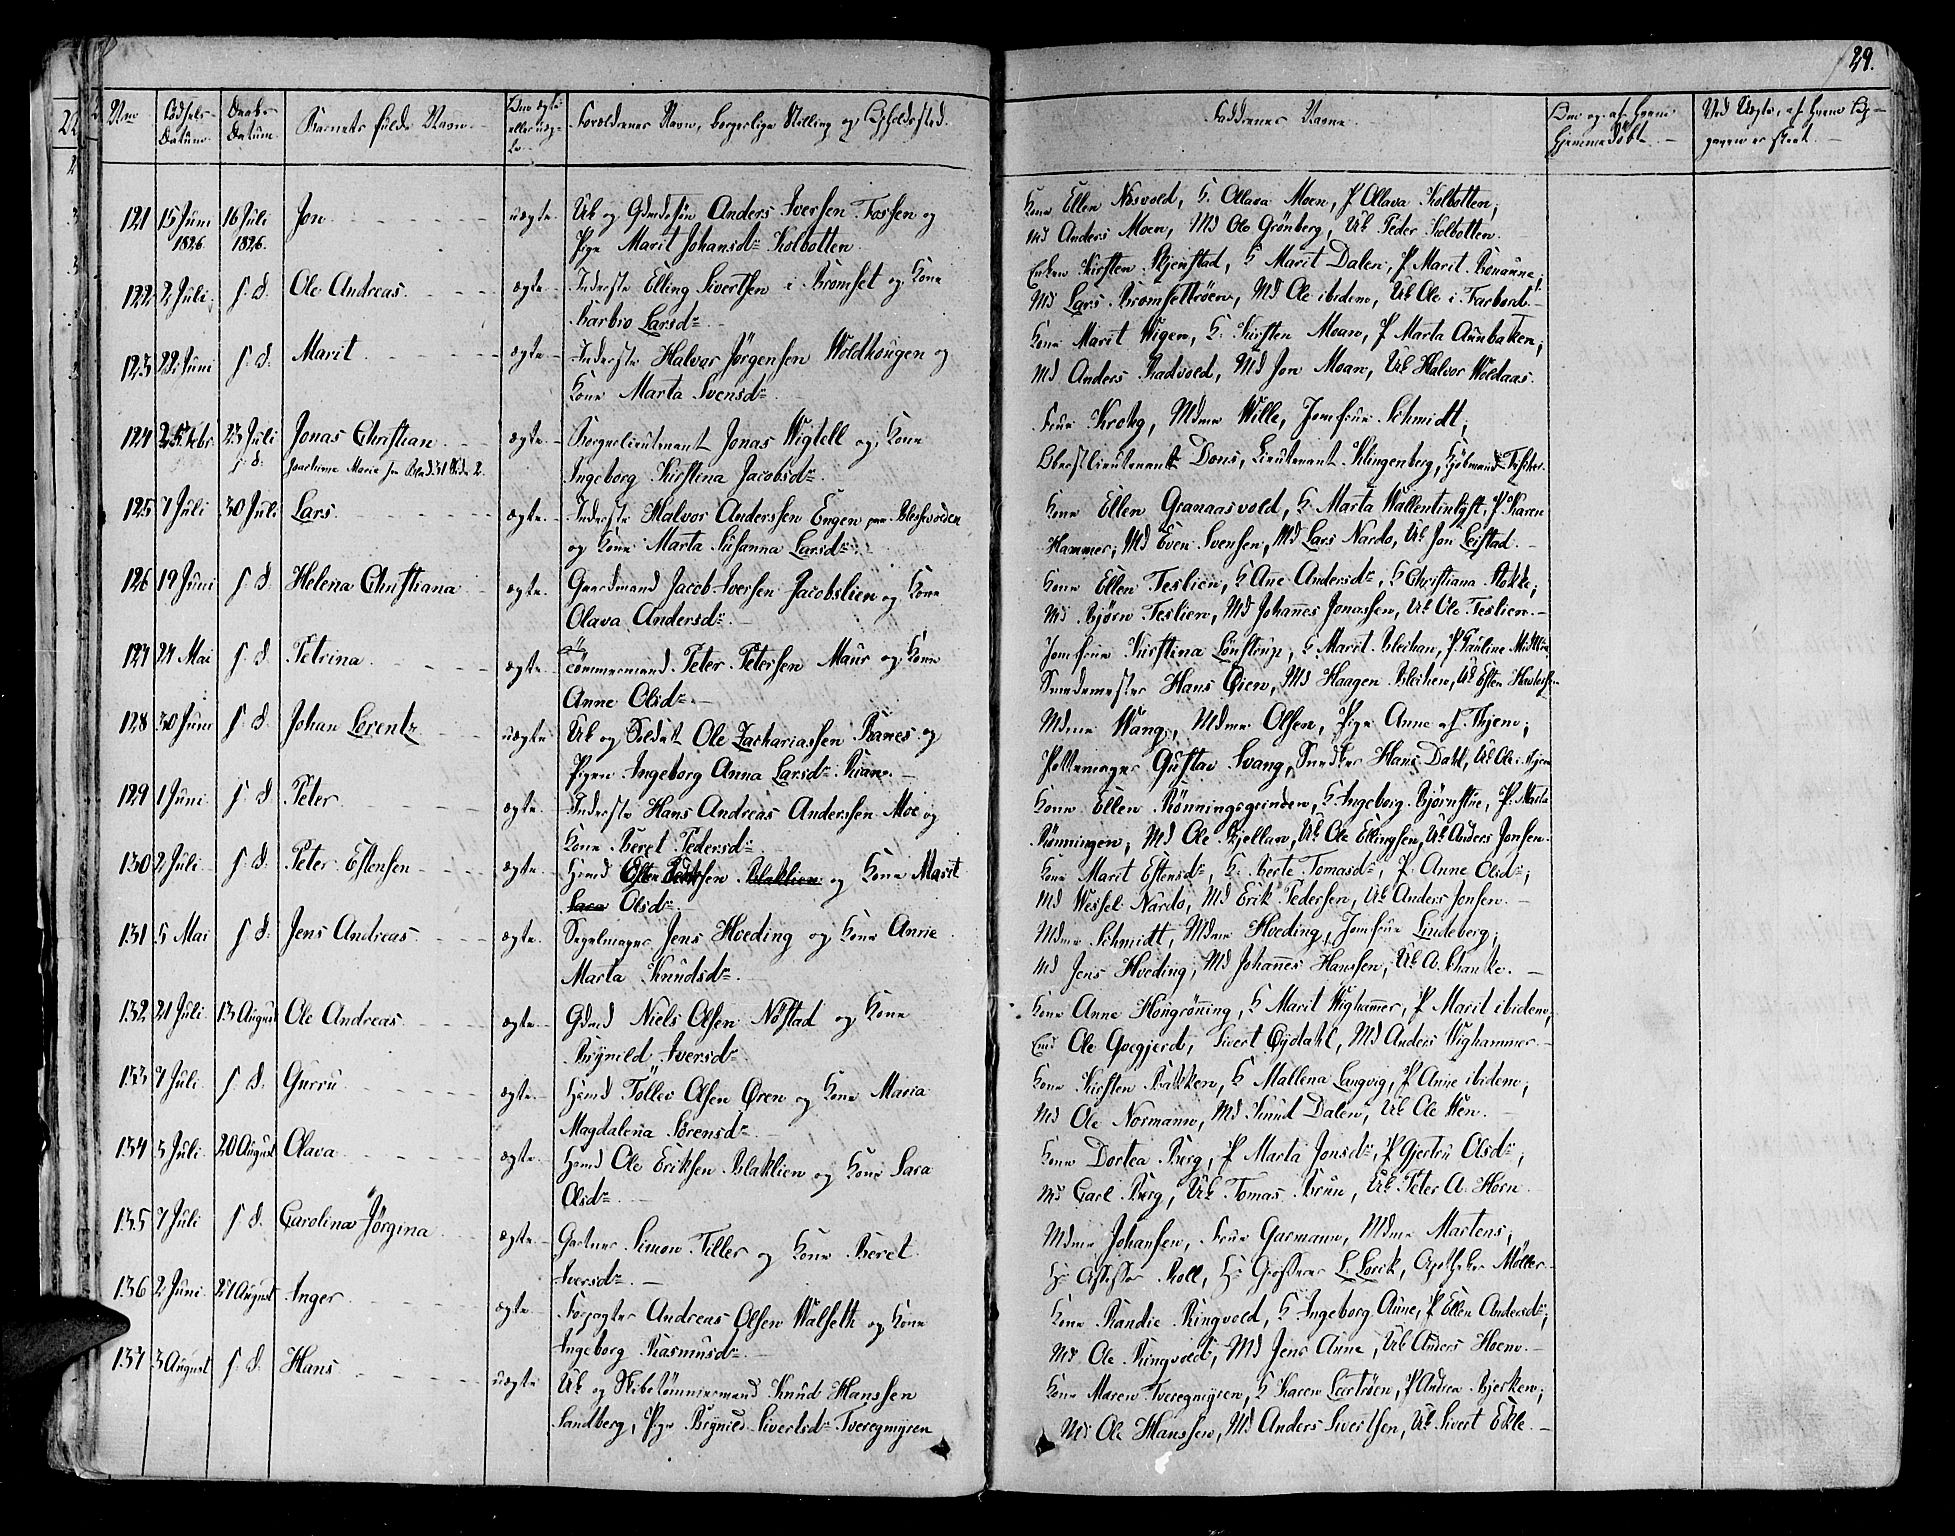 29.
Nro Fødsels-Datum. Daabs-Datum Barnets fulde Navn. Om ægte eller uægte. Forældrenes Navn, borgerlige Stilling og Opholdssted.
Faddernes Navne. Om og af hvem hjemmedøbt. Ved Uægte, af hvem Opgaven er skeet.
121 15 Juni 1826. 16 Juli 1826. Jon uægte. Uk og Gmdssøn Anders Iversen Fossen og
Pige Marit Johansdr Kolbotten.
Kone Ellen Nosvold, K. Ollava Moen, P Ollava Kolbotten;
Md Anders Moen, Md Ole Grönberg, Uk Peder Kolbotten.
122 2 Juli s. d. Ole Andreas. ægte. Inderste Elling Sivertsen i Bromset og Kone
Barbro Larsdr
Enken Kirsten Skjenstad, K Marit Dalen, P Marit
Md Lars Bromsettröen, Md Ole ibidem, Uk Ole i
123 28 Juni s. d. Marit. ægte. Inderste Halvor Jörgensen Woldhougen og
Kone Marta Svensdr
Kone Marit Wigen, K. Kirsten Moan, P Marta Aunbakken;
Md Anders Radvold, Md Jon Moan, Uk Halvor Woldaas.
124 23 Juli s. d. Jonas Christian ægte. Sergelieutenant Jonas Wigtell og Kone
Ingeborg Kirstina Jacobsdr
Frue Krohg, Mdme Wille, Jomfrue Schmidt;
Oberstlieutenant Dons, Lieutenant Klingenberg, Kjöbmand
125 7 Juli 30 Juli Lars. ægte. Inderste Halvor Anderssen Engen
og Kone Marta Susanna Larsdr.
Kone Ellen Granaasvold, K. Marta Wallentinlyst, P. Karen
Hammer; Md Even Svensen, Md Lars Nardo, Uk Jon Leistad.
126 19 Juni s. d. Helena Christiana ægte. Gaardmand Jacob Iversen Jacobslien og Kone
Olava Andersdr.
Kone Ellen Teslien, K Ane Andersdr, K Christiana Stokke;
Md Björn Teslien, Md Johannes Jonassen, Uk Ole Teslien.
127 24 Mai s. d. Petrina. ægte. Tömmermand Peter Petersen Maur og Kone
Anne Olsdr.
Jomfrue Kirstina Lönstrup, K. Marit Blechan, P. Pauline
Smedemester Hans Öien, Md Haagen Blechen, Uk Esten
128 30 Juni s. d. Johan Lorentz uægte. Uk og Soldatt Ole Zachariassen Ranes og
Pigen Ingeborg Anna Larsdr
Mdme Wang, Mdme Olsen, Pige Anne af Hjem;
Pottemager Gustav Svang, Snedker Hans Dahl, Uk Ole i
129 1 Juni s. d. Peter. ægte. Inderste Hans Andreas Anderssen Moe og
Kone Beret Pedersdr
Kone Ellen Rönningsgrinden, K Ingeborg Björnstue, P. Marta
Rönningen, Md Ole Kjellan, Uk Ole Ellingsen, Uk Anders Jonsen.
130 2 Juli s. d. Peter Estensen ægte. Hmd Esten Eriksen Blaklien og Kone Marit
Sara Olsdr.
Kone Marit Estensdr, K. Berte Tomasdr, P. Anne Olsdr;
Md Wessel Nardo, Md Erik Pedersen, Uk Anders Jonsen.
131 5 Mai s. d. Jens Andreas. ægte. Segelmager Jens Hveding og Kone Anne
Marta Knudsdr
Mdme Schmidt, Mdme Hveding, Jomfrue Lindeberg;
Md Jens Hveding, Md Johannes Hanssen, Uk A. Schanke.
132 21 Juli 13 August Ole Andreas ægte. Gdmd Niels Olsen Nöstad og Kone
Brynild Iversdr
Kone Anne Hougröning, K Marit Wighammer, P Marit ibidem,
Ole Goegjerd, Sivert Öydahl, Md Anders Wighammer.
133 7 Juli s. d. Gurru ægte. Hmd Töllev Olsen Ören og Kone Maria
Magdalena Sörensdr
Kone Kirsten Bakken, K Mallena Langvig, P Anne ibidem;
Md Ole Normann, Md Knud Dalen, Uk Ole Wen.
134 5 Juli 20 August Olava ægte. Hmd Ole Eriksen Blaklien og Kone Sara
Olsdr
Kone Dortea Berg, P Marta Jonsdr, P Gjertru Olsdr;
Md Carl Berg, Uk Tomas Brun, Uk Peter A. Horn.
135 7 Juli s. d. Carolina Jörgina ægte. Gartner Simon Tiller og Kone Beret
Iversdr
Mdme Johansen, Frue Garmann, Mdme Martens;
Hr Assessor Roll, Hr Grosserer L. Lorck, Apotheker Möller
136 2 Juni 27 August Inger ægte. Forpagter Andreas Olsen Walseth og Kone
Ingeborg Rasmusdr
Kone Randie Ringvold, K Ingeborg Aune, P Ellen Andersdr;
Md Ole Ringvold, Md Jens Aune, Uk Anders Hoem.
137 3 August s. d. Hans uægte. Uk og Skibstömmermand Knud Hanssen
Sandberg, Pige Brynild Sivertsdr Tveregmyren
Kone Maren Tveregmyren, K Karen Leertröen, P Andrea Bjerken;
Md Ole Hanssen, Md Anders Sivertsen, Uk Sivert Ekle.